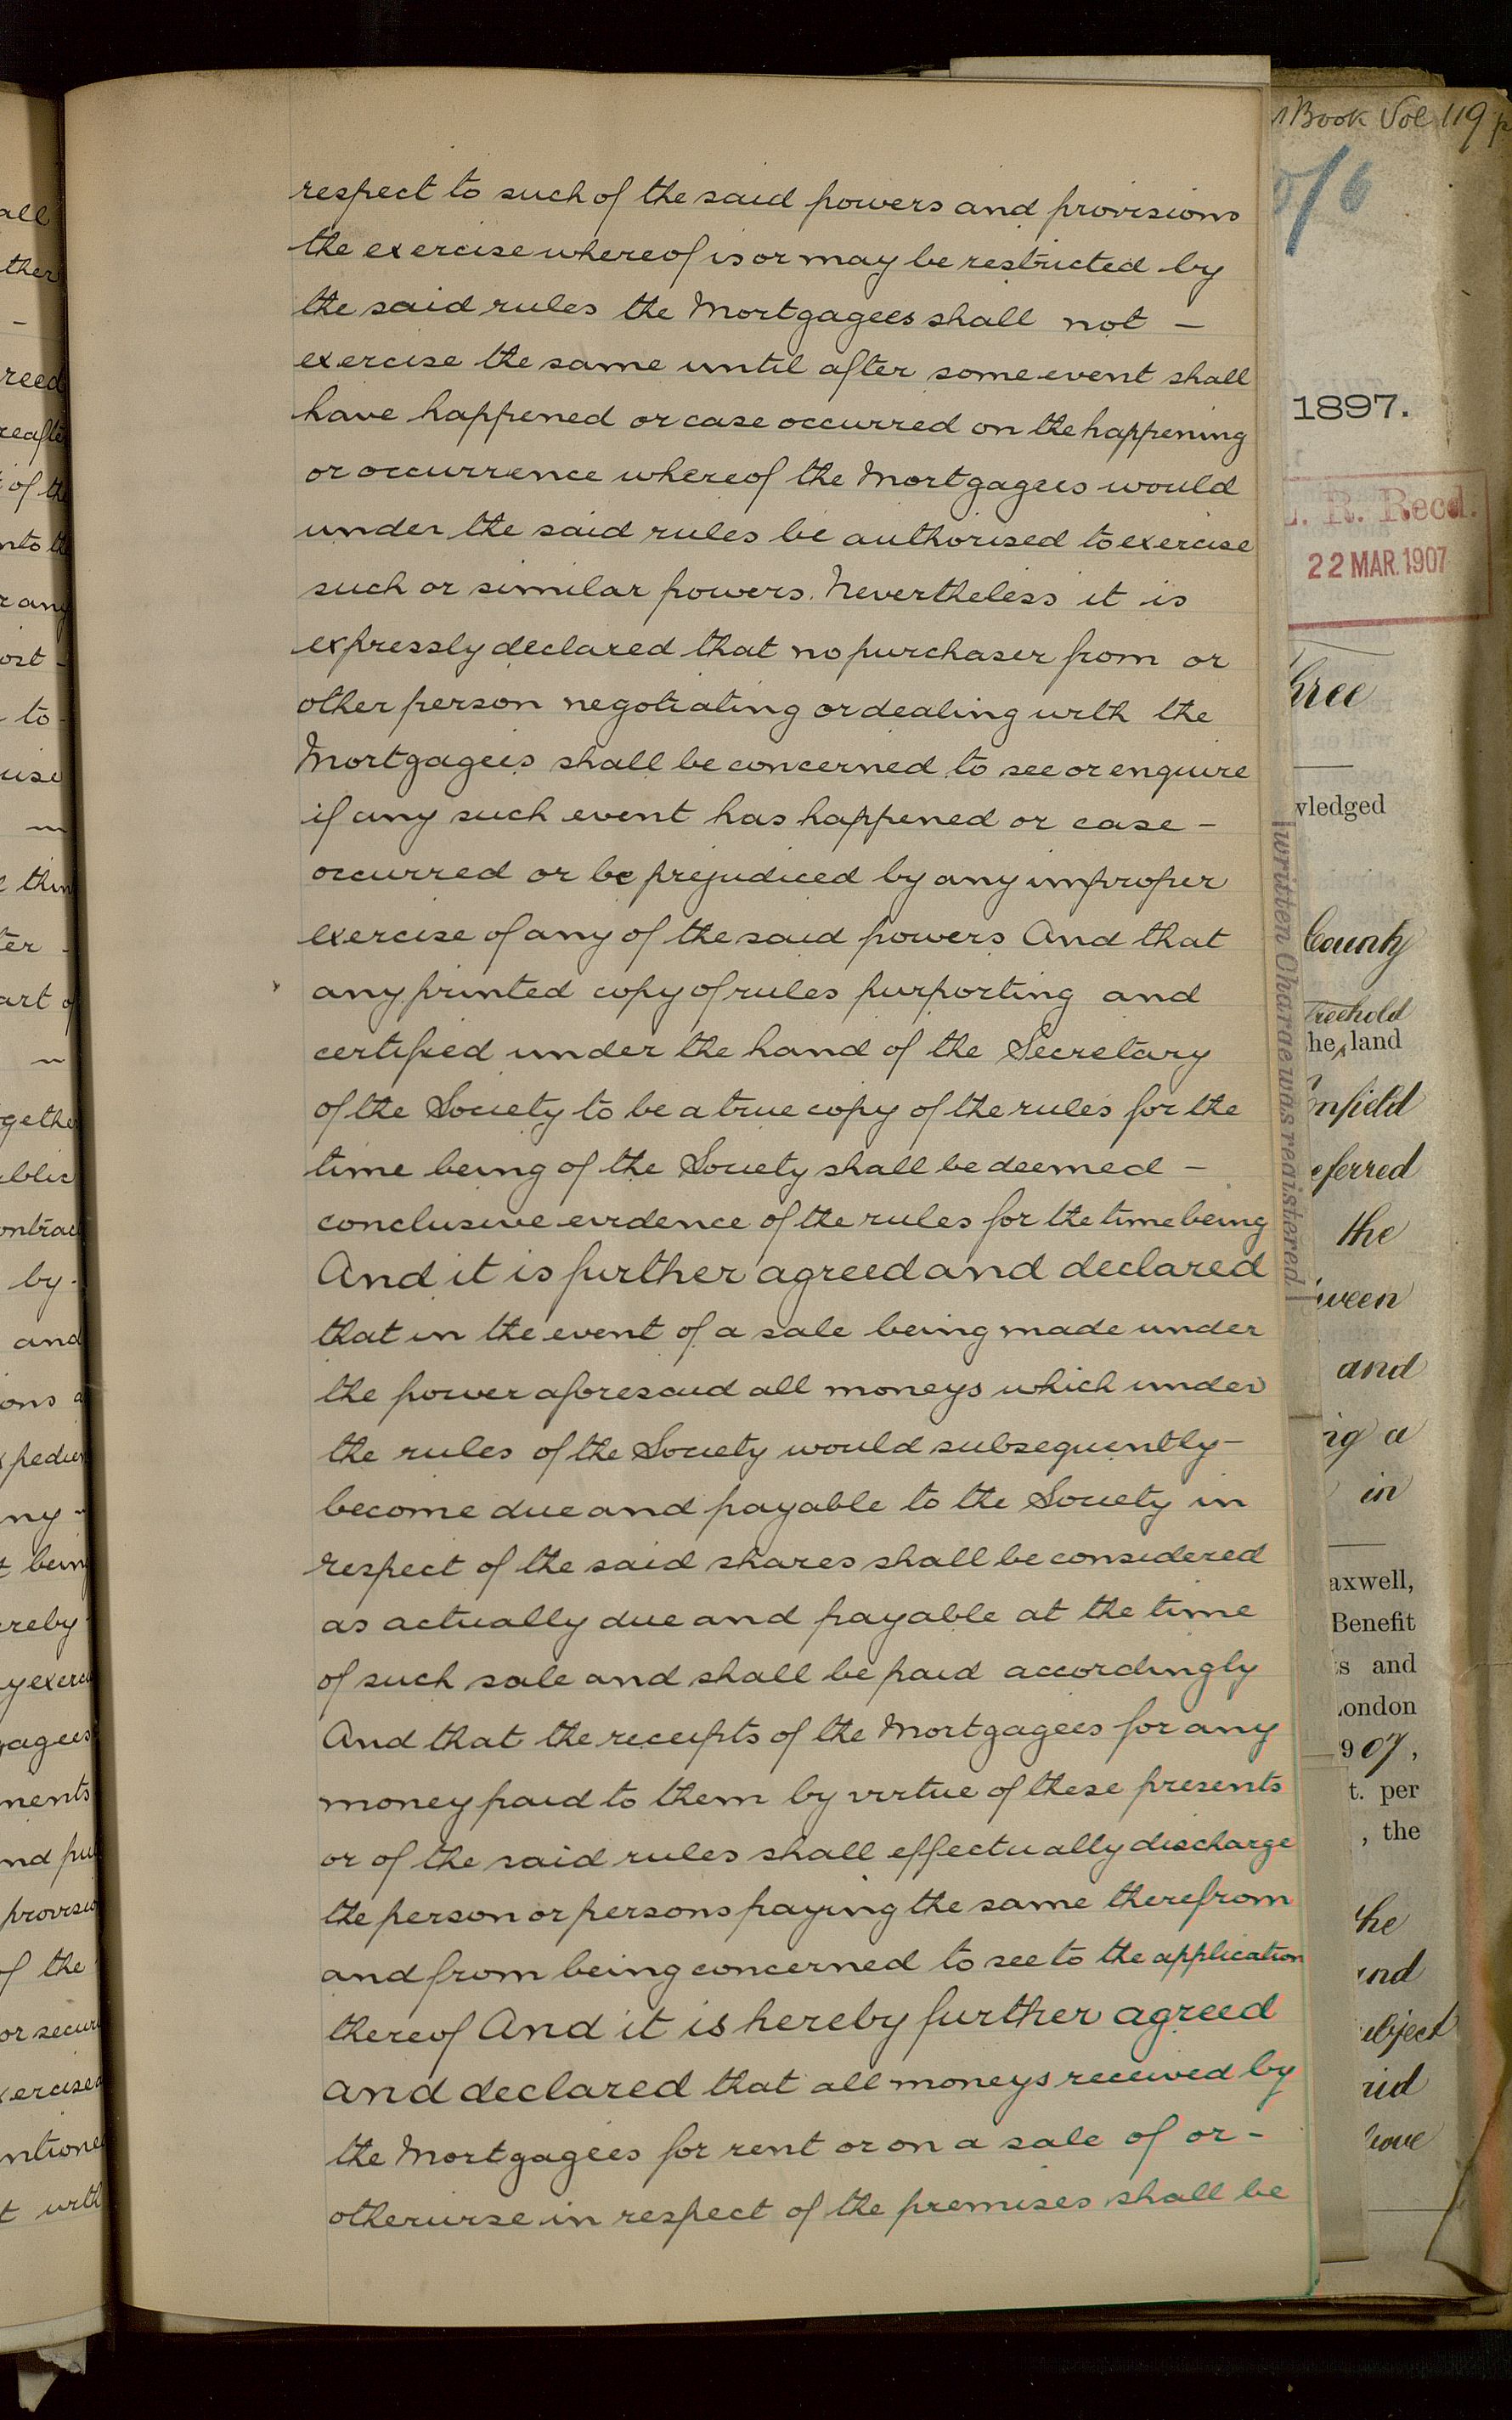 respect to such of the said powers and provisions
the exercise whereof is or may be restricted by
the said rules the Mortgagees shall not -
exercise the same until after some event shall
have happened or case occurred on the happening
or occurrence whereof the Mortgagees would
under the said rules be authorised to exercise
such or similar powers. Nevertheless it is
expressly declared that no purchaser from or
other person negotiating or dealing with the
Mortgagees shall be concerned to see or enquire
if any such event has happened or case -
occurred or be prejudiced by any improper
exercise of any of the said powers And that
any printed copy of rules purporting and
certified under the hand of the Secretary
of the Society to be a true copy of the rules for the
time being of the Society shall be deemed -
conclusive evidence of the rules for the time being
And it is further agreed and declared
that in the event of a sale being made under
the power aforesaid all moneys which under
the rules of the Society would subsequently -
become due and payable to the Society in
respect of the said shares shall be considered
as actually due and payable at the time
of such sale and shall be paid accordingly
And that the receipts of the Mortgagees for any
money paid to them by virtue of these presents
or of the said rules shall effectually discharge
the person or persons paying the same therefrom
and from being concerned to see to the application
thereof And it is hereby further agreed
and declared that all moneys received by
the Mortgagees for rent or on a sale of or -
otherwise in respect of the premises shall be
Book Vol 119
1897.
L. R. Recd.
22 MAR. 1907
written Charge was registered
County
Freehold
land
Enfield
the
and
a
in
Benefit
and
907,
per
, the